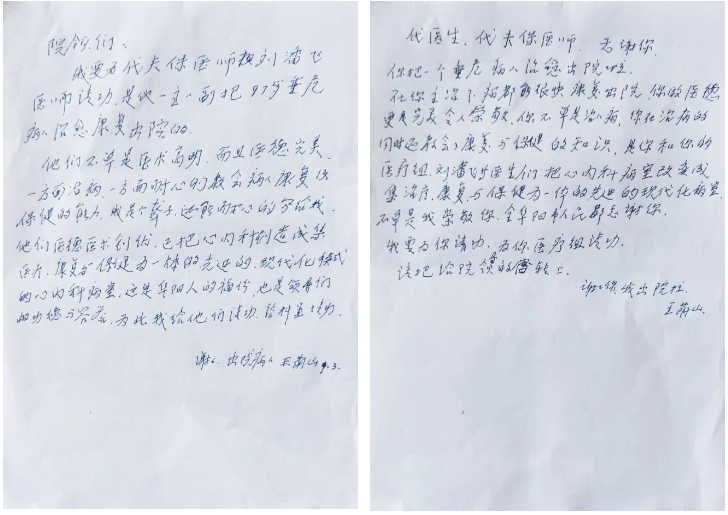 院领们：
我要为代夫保医师和刘潘飞
医师请功，是他一主一副把87岁重危
病人治愈康复出院的。
他们不单是医术高明，而且医德完美，
一方面治病，一方面耐心的教会病人康复及
保健的能力，我是个聋子，还能耐心的写给我，
他们医德医术创优，还把心内科创造成集
医疗、康复与保健为一体的先进的，现代化模式
的心内科病室，这是华阳人的福份，也是领导们
的功德与荣誉，为此我给他们请功，给科室请功，
谢谢 出院病人 王荫山 9.3.
代医生，代夫保医师，感谢你，
你把一个重危病人治愈出院啦，
在你主治下病都能很快康复出院，你的医德
更是令人崇敬，你不单是治病，你在治病的
同时还教会了康复与保健的知识，是你和你的
医疗组，刘潘飞医生们把心内科病室改变成
集治疗，康复与保健为一体的先进的现代化病室，
不单是我崇敬你，全华阳市人民都感谢你，
我要为你请功，为你医疗组请功，
请把给院领的信转上
谢谢你 我出院啦
王荫山，